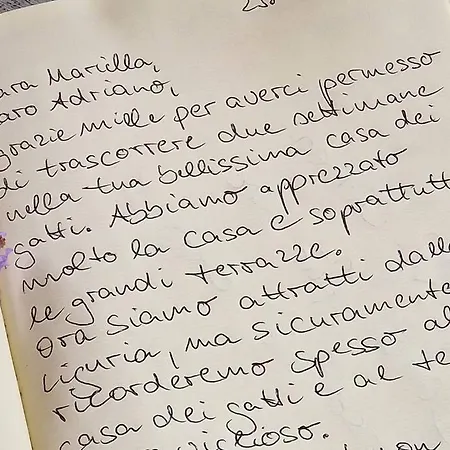 ara Maricilla,
aro Adriano,
grazie mille per averci permesso
di trascorrere due settimane
nella tua bellissima casa dei
gatti. Abbiamo apprezzato
molto la casa e soprattutt
le grandi terrazze.
Ora siamo attratti dalla
Liguria, ma sicuramente
ricorderemo spesso al
casa dei gatti e al te